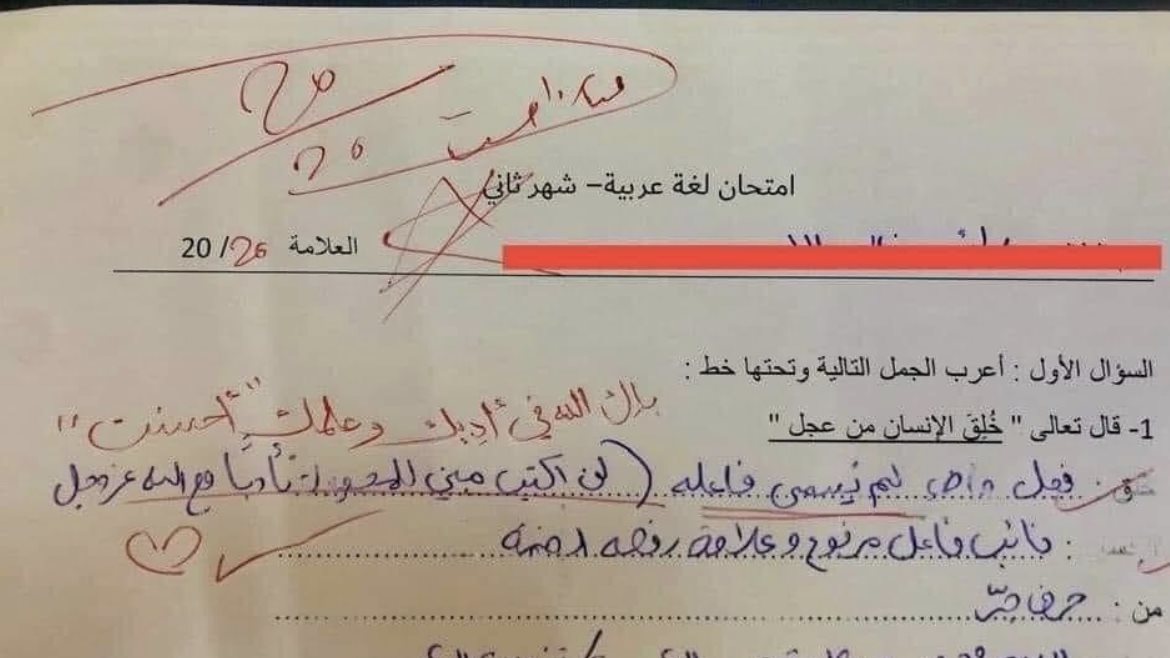 20
20
امتحان لغة عربية– شهر ثاني
العلامة 20/ 20
السؤال الأول : أعرب الجمل التالية وتحتها خط :
بارك الله في أدبك وعلمك "أحسنت"
1- قال تعالى " خُلِقَ الإنسان من عجل "
خلق : فعل ماضي لم يُسمى فاعله (لن اكتب مبني للمجهول تأدبًا مع الله عزوجل
: نائب فاعل مرفوع وعلامة رفعه الضمة
من : حرف جرّ